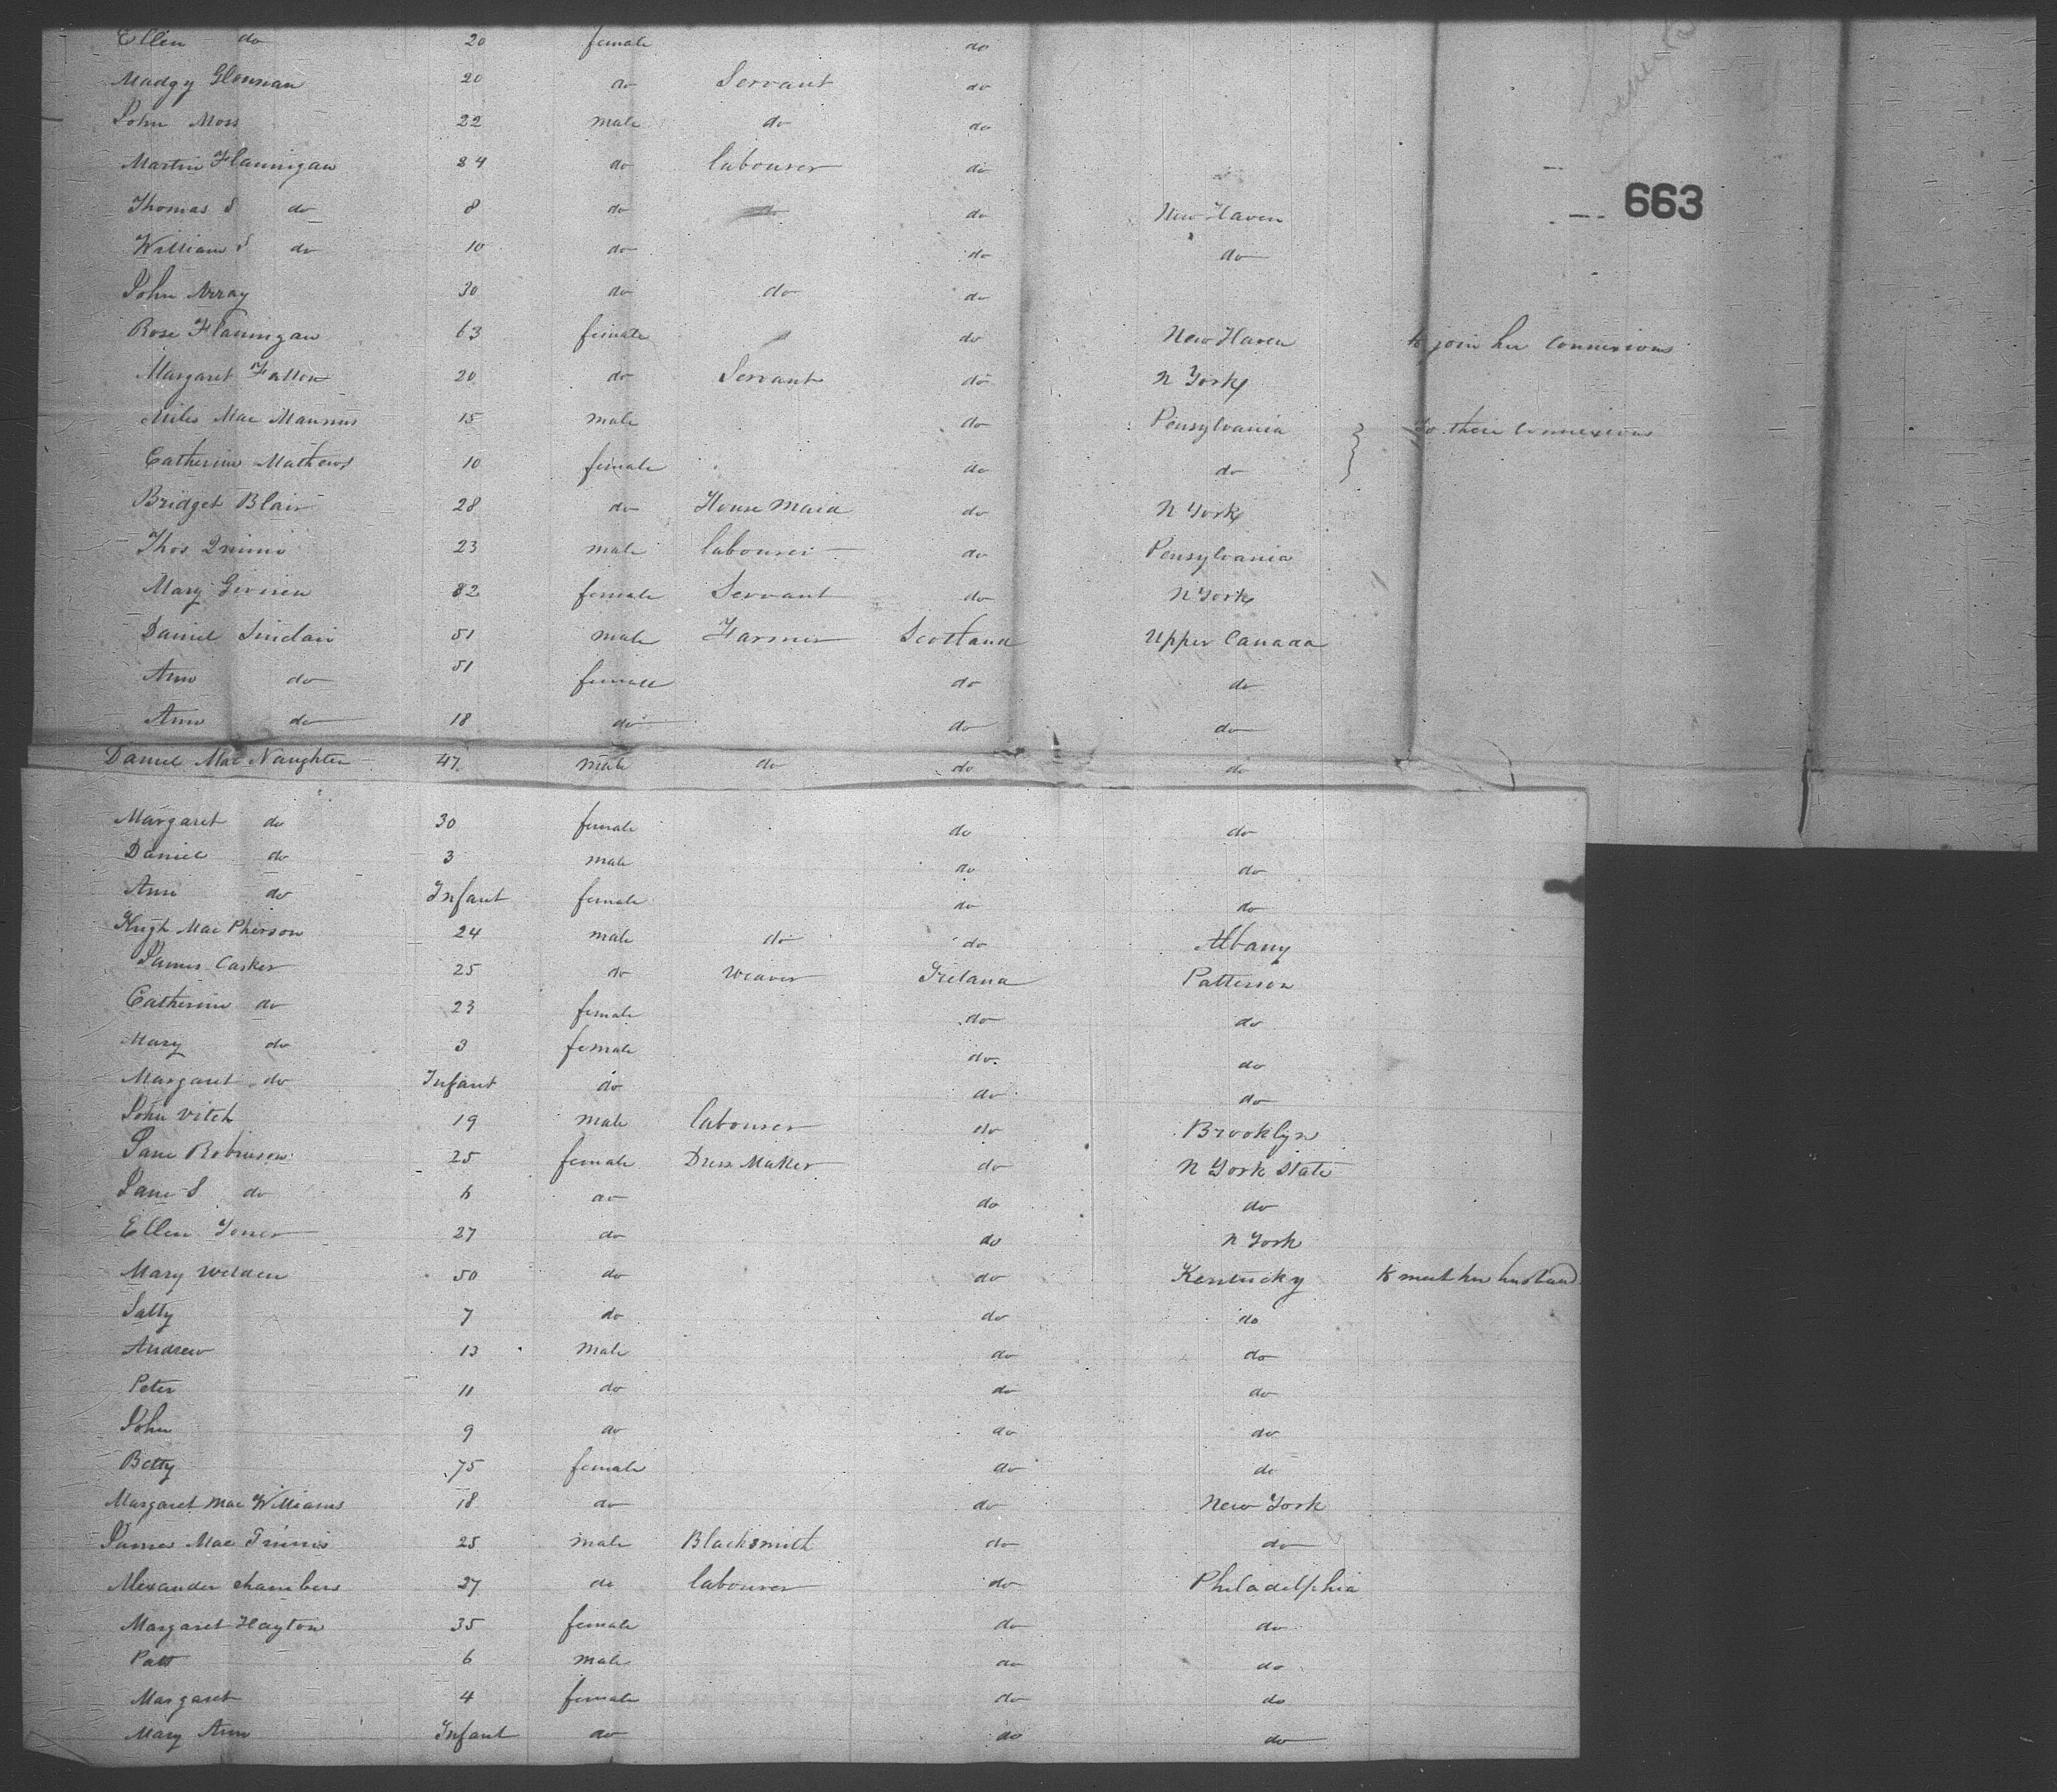 Ellen do 20 female do
Madgy Glennan 20 do Servant do
John Moss 22 male do do
Martin Flannigan 24 do labourer do
663
Thomas S do 8 do do do New Haven
William S do 10 do do do
John Array 30 do do do
Rose Flannigan 63 female do New Haven to join her connexions
Margaret Fallon 20 do Servant do N York
Miles Mac Mannus 15 male do Pensylvania } To there connexions
Catherine Mathews 10 female do do
Bridget Blair 28 do House Maid do N York
Thos 23 male labourer do Pensylvania
Mary 22 female Servant do N York
Daniel Sinclair 51 male Farmer Scotland Upper Canada
Ann do 51 female do do
Ann do 18 do do do
Daniel Mac Naughten 47 male do do do
Margaret do 30 female do do
Daniel do 3 male do do
Ann do Infant female do do
Hugh Mac Pherson 24 male do do Albany
James Casker 25 do Weaver Ireland Patterson
Catherine do 23 female do do
Mary do 3 female do do
Margaret do Infant do do do
John Vitch 19 male labourer do Brooklyn
Jane Robinson 25 female Dress Maker do N York State
Jane S do 6 do do do
Ellen 27 do do N York
Mary Welden 50 do do Kentucky to meet her husband
Satty 7 do do do
Andrew 13 male do do
Peter 11 do do do
John 9 do do do
Betty 75 female do do
Margaret Mac Williams 18 do do New York
James Mac 25 male Blacksmith do do
Alexander Chambers 27 do labourer do Philadelphia
Margaret Hayton 35 female do do
Patt 6 male do do
Margaret 4 female do do
Mary Ann Infant do do do